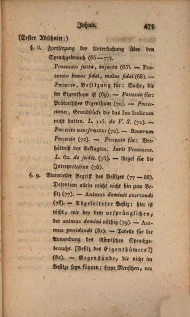 Inhalt. 475
(Erster Abschnitt:)
§. 8. Fortsetzung der Untersuchung über den
Sprachgebrauch (66—77).
Possessio justa, injusta (67). — Possessio
bonae fidei, malae fidei (68). —
Possessio, Besitzung für: Sache, die
im Eigenthum ist (69). — Possessio für:
Prätorisches Eigenthum (70). — Possessiones,
Grundstücke die das Jus Italicum
nicht haben. L. 115. de V. S. (71). —
Possessio usufructus (72). — Bonorum
Possessio (72). — Possessio für: Verhältniß
des Beklagten. Juris Possessor.
L. 62. de judic. (73). — Regel für die
Interpretation (76).
§. 9. Materieller Begriff des Besitzes (77—88).
Detention allein reicht nicht hin zum Besitz
(77). — Animus domini exercendi
(78). — Abgeleiteter Besitz: hier ist
nicht, wie bey dem ursprünglichen,
der animus domini nöthig (79). — Animus
possidendi (81). — Tabelle für die
Anwendung des Römischen Sprachgebrauchs:
(Besitz des Eigenthümers)
(82). — Gegenstände, die nicht im
Besitz seyn können: freye Menschen, von